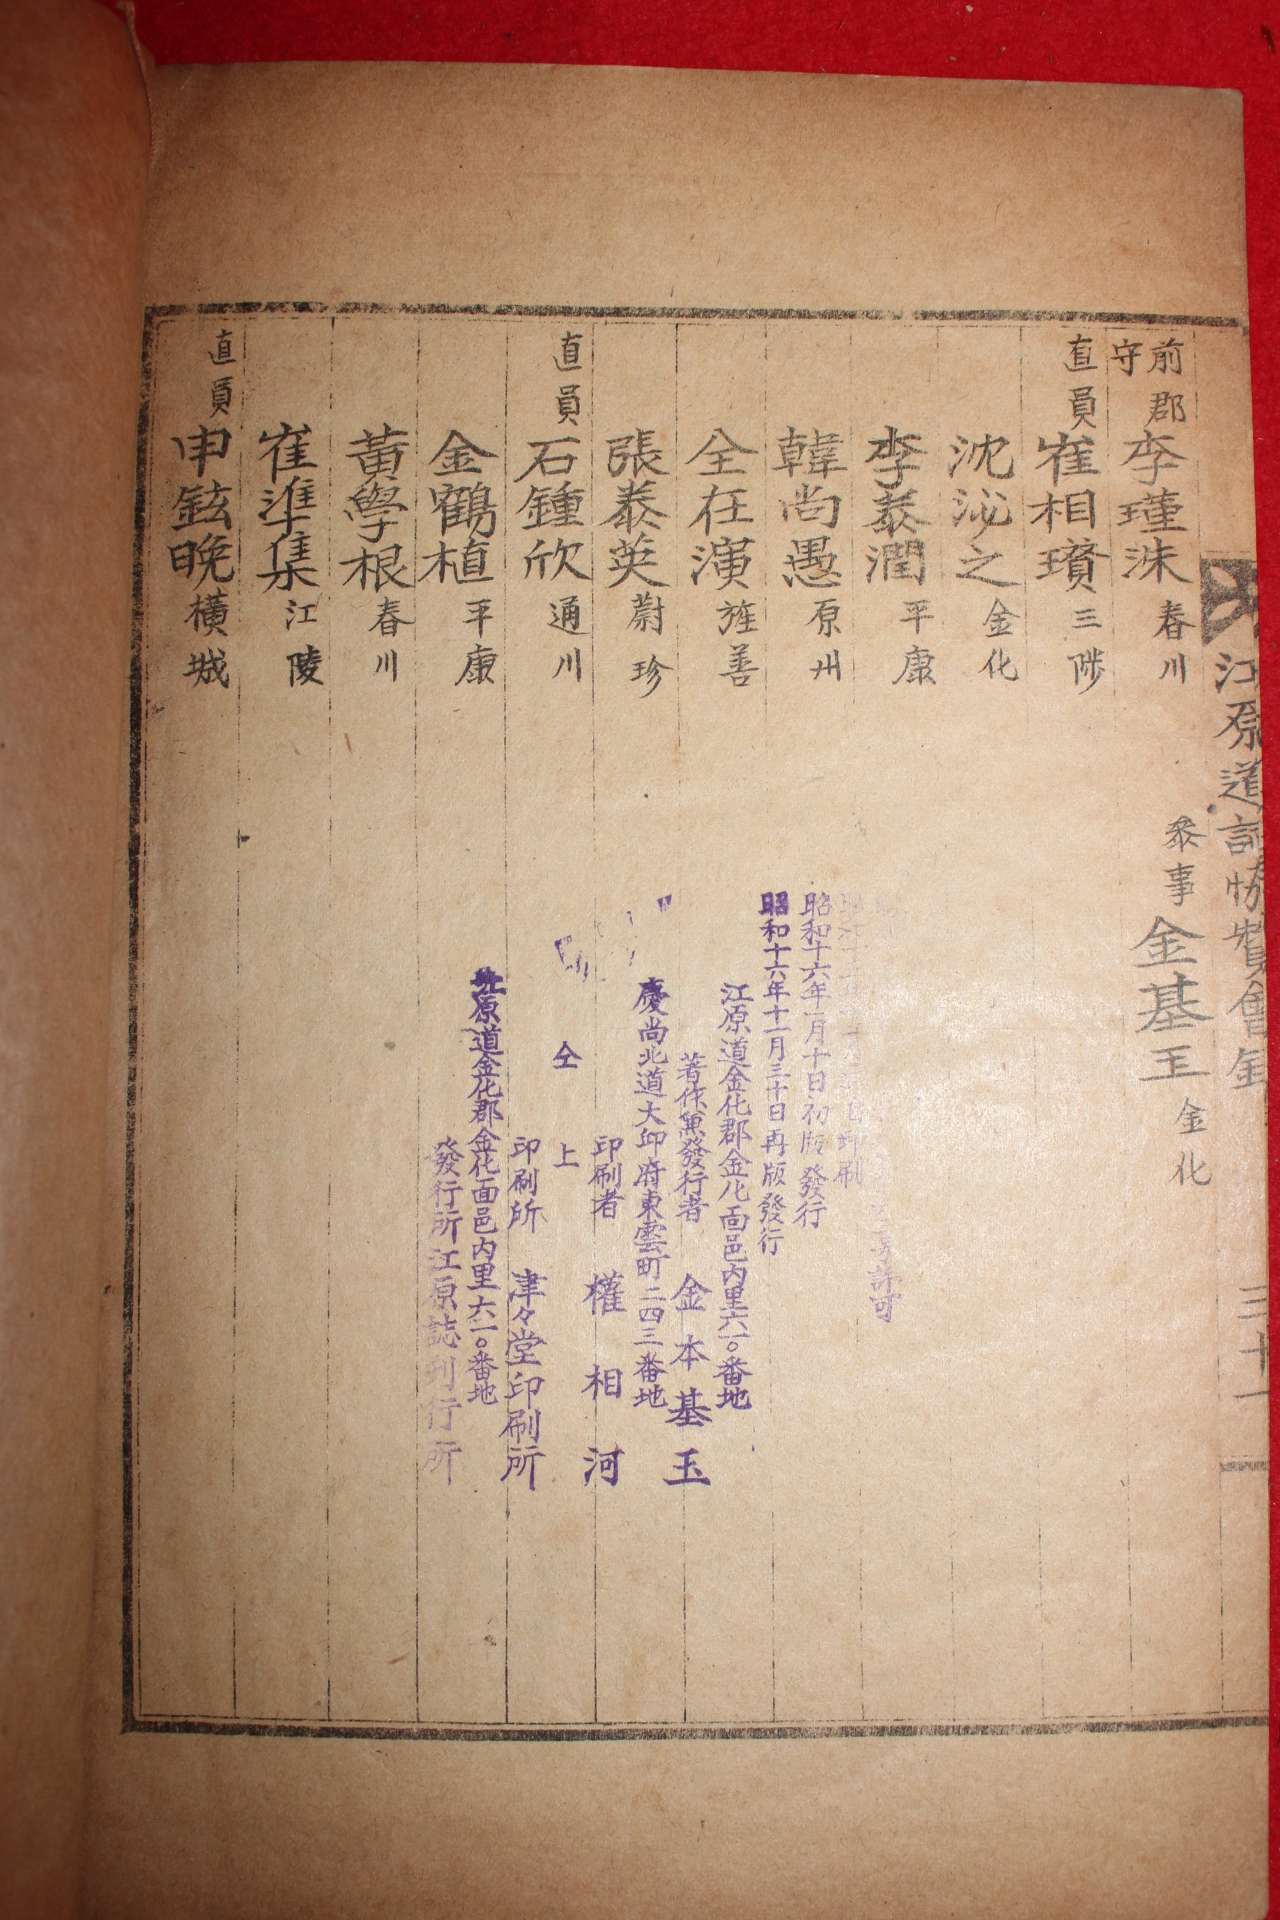 江原道誌協賛會錄
三十一
前郡守 李瑾洙 春川
叅事 金基玉 金化
直員 崔相瓚 三陟
沈泌之 金化
李泰潤 平康
韓尚愚 原州
全在演 旌善
張泰英 蔚珍
直員 石鍾欣 通川
金鶴植 平康
黃學根 春川
崔準集 江陵
直員 申鉉晩 橫城
許可
印刷
昭和十六年一月十日初版發行
昭和十六年十一月三十日再版發行
江原道金化郡金化面邑内里六一〇番地
著作兼發行者 金本基玉
慶尚北道大邱府東雲町二四三番地
印刷者 權相河
仝上
印刷所 津々堂印刷所
江原道金化郡金化面邑内里六一〇番地
發行所江原誌刊行所